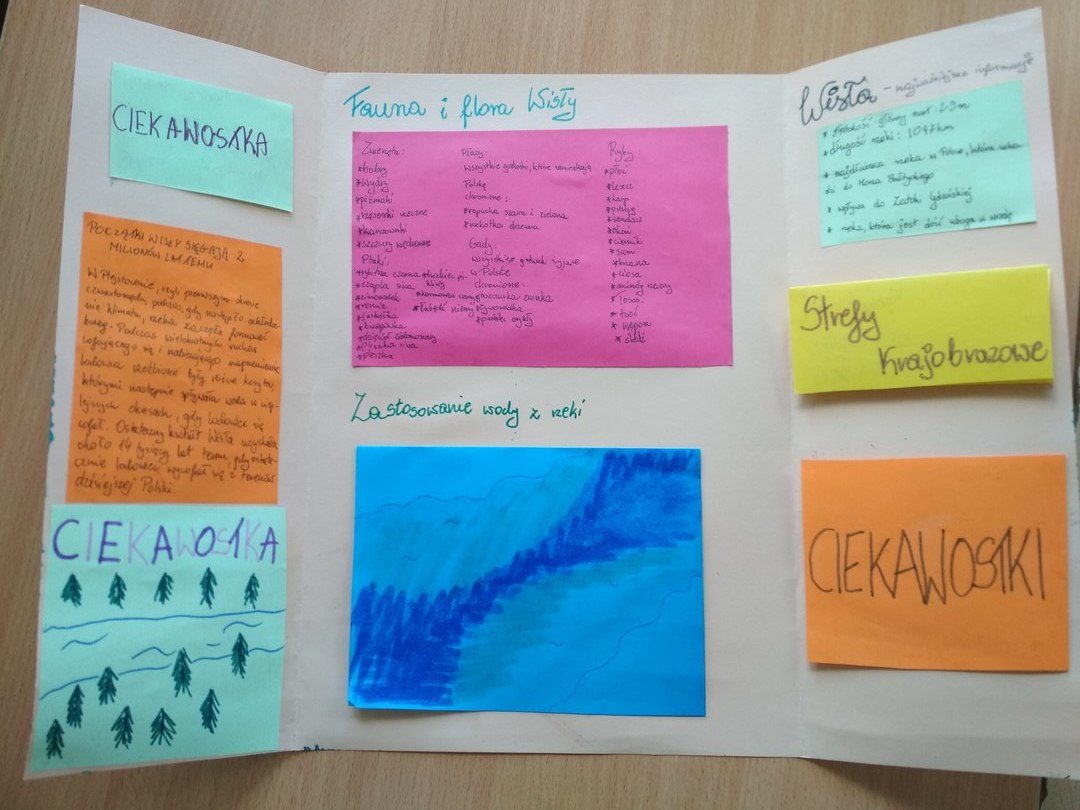 CIEKAWOSTKA
POCZĄTKI WISŁY SIĘGAJĄ 2
MILIONÓW LAT TEMU
W Plejstocenie, czyli pierwszym okresie
czwartorzędu, podczas, gdy nastąpiło ochłodze-
nie klimatu, rzeka zaczęła formować
bieg. Podczas wielokrotnych ruchów
cofającego się i nabierającego
lodowca rzeźbione były różne koryta,
którymi następnie spływała woda w cie-
plejszych okresach, gdy lodowiec się
cofał. Ostateczny kształt Wisła uzyskała
około 14 tysięcy lat temu, gdy ostate-
cznie lodowiec wycofał się z terenów
dzisiejszej Polski.
CIEKAWOSTKA
Fauna i flora Wisły
Zwierzęta:
*bobry
*wydry
*piżmaki
*rzęsorki rzeczne
*karczowniki
*szczury wędrowne
Ptaki:
*rybitwa czarna
*czapla siwa
*zimorodek
*remiz
*jaskółka
*brzegówka
*pliszka siwa
*pleszka
*łabędź niemy
Płazy:
wszystkie gatunki, które zamieszkują
Polskę
chronione:
*ropucha szara i zielona
*rzekotka drzewna
Gady:
wszystkie gatunki żyjące
w Polsce
chronione:
*jaszczurka zwinka
*żyworódka
*padalec zwykły
Ryby:
*płoć
*leszcz
*karp
*pstrąg
*sandacz
*okoń
*ciernik
*sum
*brzana
*ciosa
*minóg rzeczny
*łosoś
*troć
*węgorz
*śledź
Zastosowanie wody z rzeki
Wisła - najważniejsze informacje
* głębokość: główny nurt: 2-3 m
* długość rzeki: 1047km
* najdłuższa rzeka w Polsce, która wpa-
da do Morza Bałtyckiego
* wpływa do Zatoki Gdańskiej
* rzeka, która jest dość uboga w wodę
Strefy
Krajobrazowe
CIEKAWOSTKI